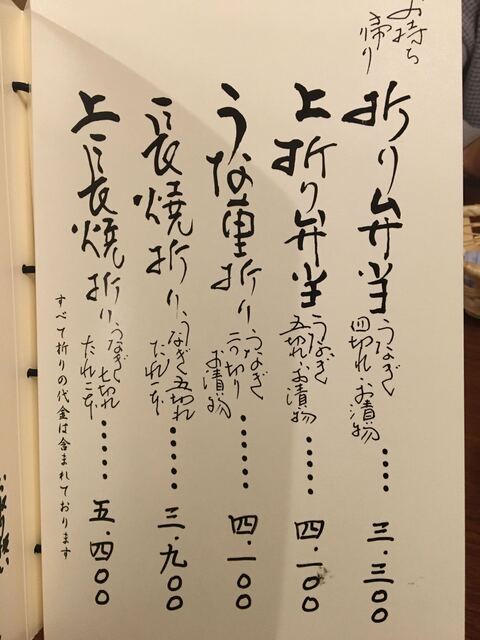 お持ち
帰り
折り弁当 うなぎ四切れ、お漬物 ・・・・・ 三・三〇〇
上折り弁当 うなぎ五切れ、お漬物 ・・・・・ 四・一〇〇
うな重折り、うなぎ お漬物 ・・・・・ 四・一〇〇
長焼折り、うなぎ五切れ たれ二本 ・・・・・ 三・九〇〇
上長焼折り、うなぎ七切れ たれ二本 ・・・・・ 五・四〇〇
すべて折りの代金は含まれております